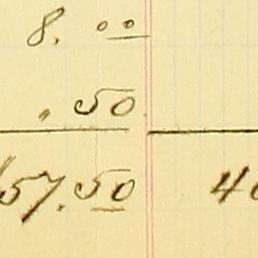 8.00
" 50
57.50